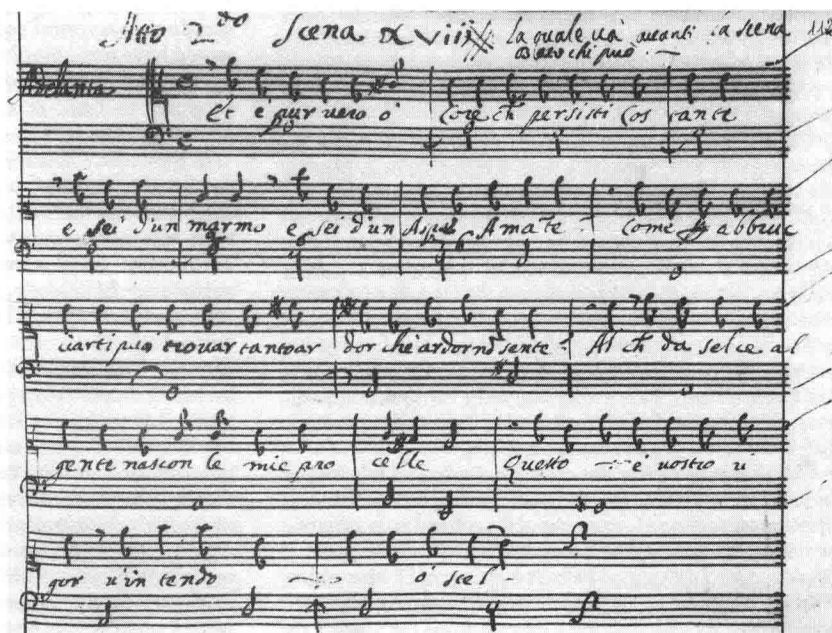 Atto 2do Scena XVIII la quale và avanti la scena 112
Adelanta
Et è pur vero ò Core ch persisti Cos tante
e sei d'un marmo e sei d'un Aspe Amate Come abbruc
ciarti può trovar tanto ar dor che ardor nō sente? Al ch da selce al
gente nascon le mie pro celle Questo è vostro ri
gor v'in tendo ò stel